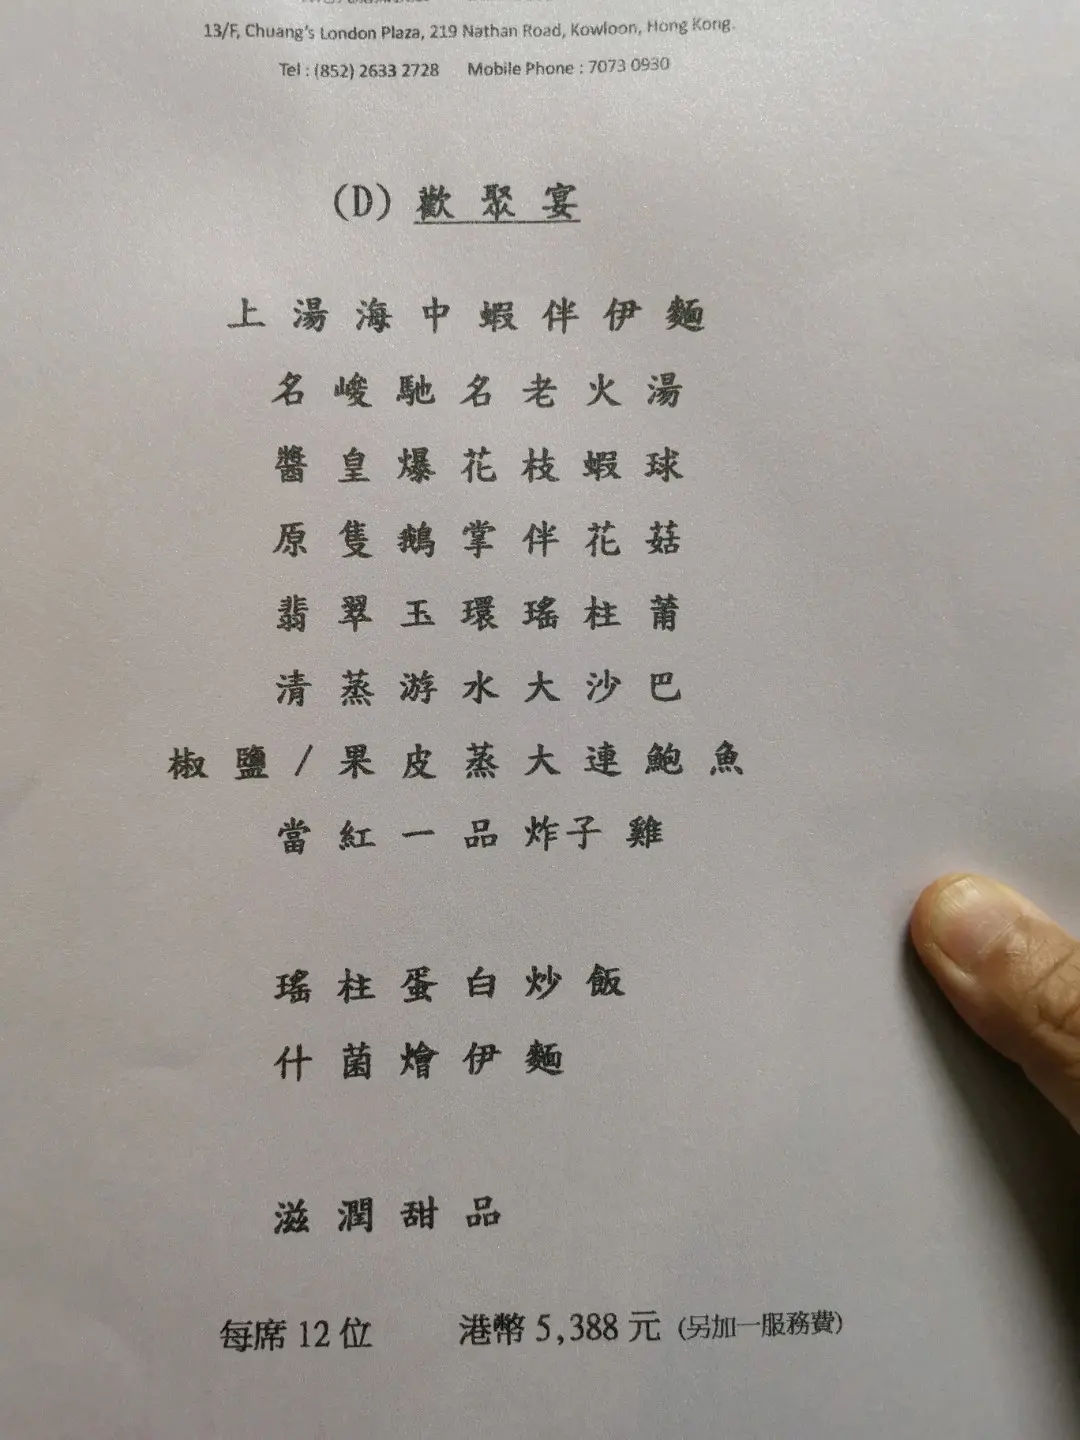 13/F, Chuang's London Plaza, 219 Nathan Road, Kowloon, Hong Kong.
Tel : (852) 2633 2728 Mobile Phone : 7073 0930
(D) 歡聚宴
上湯海中蝦伴伊麵
名峻馳名老火湯
醬皇爆花枝蝦球
原隻鵝掌伴花菇
翡翠玉環瑤柱莆
清蒸游水大沙巴
椒鹽/果皮蒸大連鮑魚
當紅一品炸子雞
瑤柱蛋白炒飯
什菌燴伊麵
滋潤甜品
每席12位 港幣5,388元 (另加一服務費)